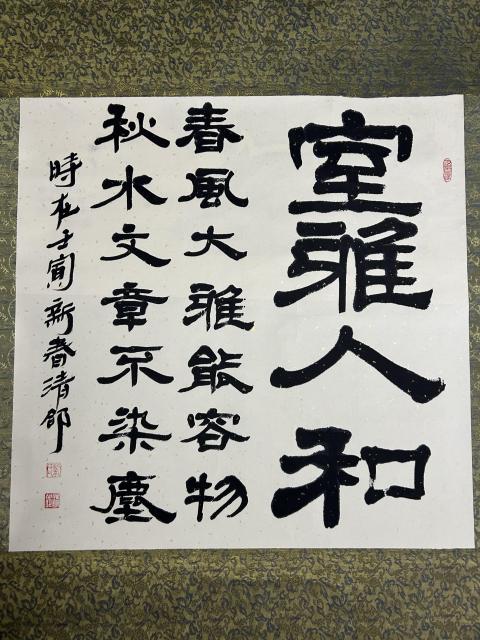 室雅人和
春風大雅能容物
秋水文章不染塵
時在壬寅新春清郃